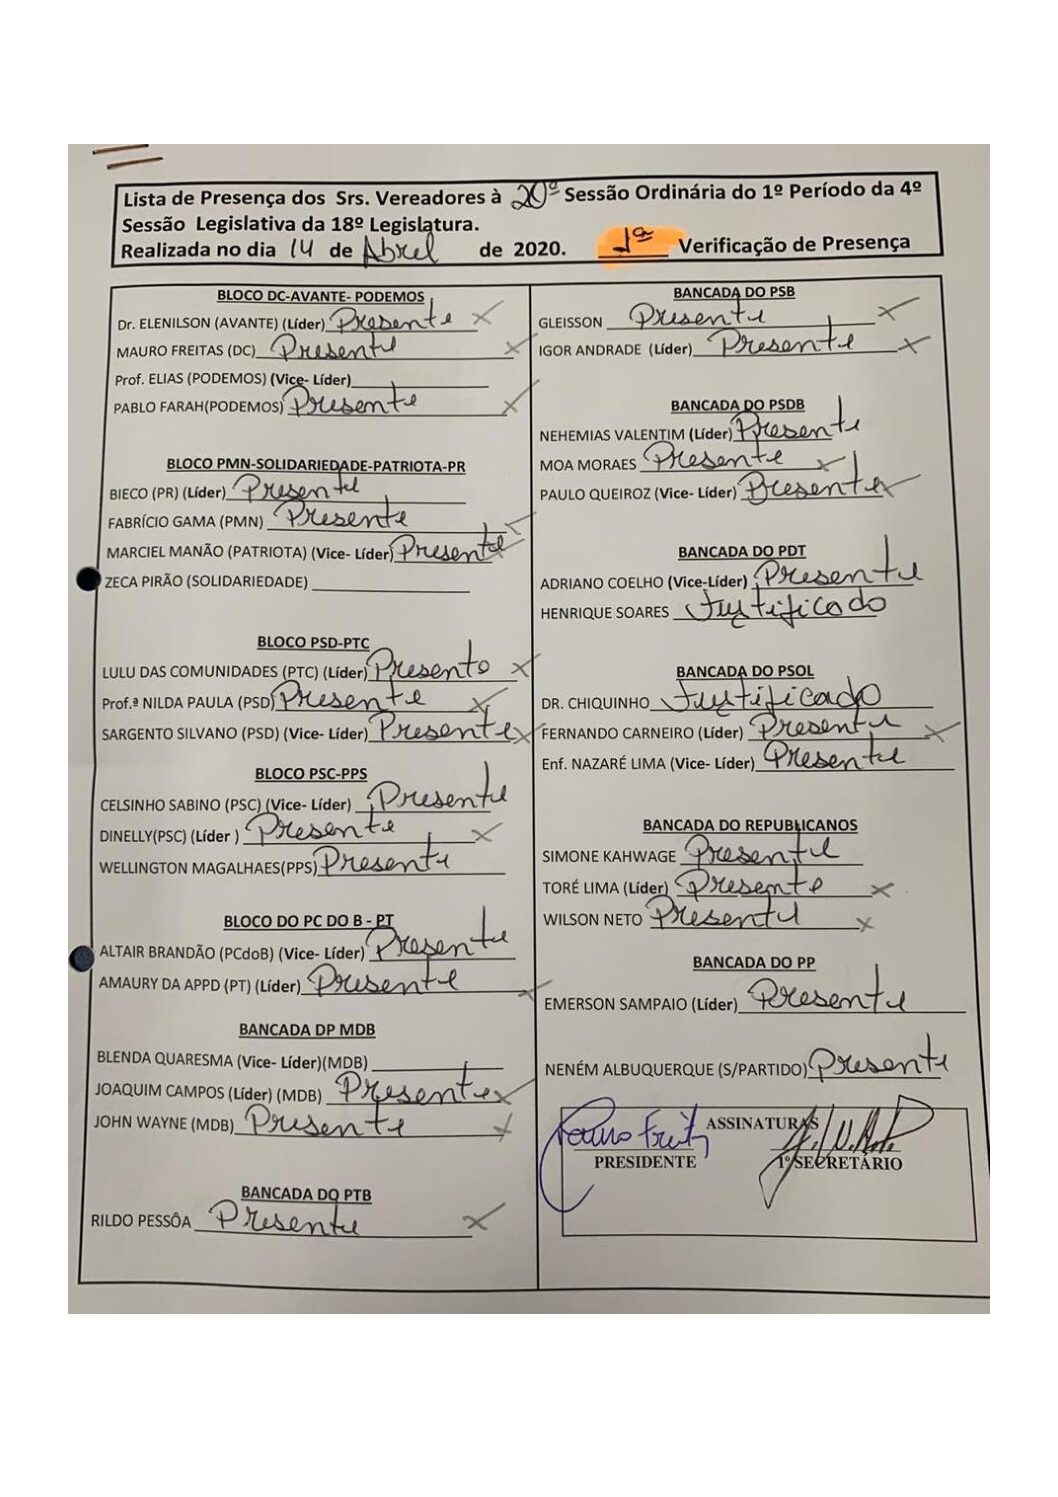 Lista de Presença dos Srs. Vereadores à 20ª Sessão Ordinária do 1º Período da 4º
Sessão Legislativa da 18º Legislatura.
Realizada no dia 14 de Abrel de 2020. 1ª Verificação de Presença
BLOCO DC-AVANTE- PODEMOS
Dr. ELENILSON (AVANTE) (Líder) Presente X
MAURO FREITAS (DC) Presente X
Prof. ELIAS (PODEMOS) (Vice- Líder)
PABLO FARAH(PODEMOS) Presente X
BLOCO PMN-SOLIDARIEDADE-PATRIOTA-PR
BIECO (PR) (Líder) Presente
FABRÍCIO GAMA (PMN) Presente X
MARCIEL MANÃO (PATRIOTA) (Vice- Líder) Presente X
ZECA PIRÃO (SOLIDARIEDADE)
BLOCO PSD-PTC
LULU DAS COMUNIDADES (PTC) (Líder) Presento X
Prof.ª NILDA PAULA (PSD) Presente X
SARGENTO SILVANO (PSD) (Vice- Líder) Presente X
BLOCO PSC-PPS
CELSINHO SABINO (PSC) (Vice- Líder) Presente
DINELLY(PSC) (Líder ) Presente X
WELLINGTON MAGALHAES(PPS) Presente
BLOCO DO PC DO B - PT
ALTAIR BRANDÃO (PCdoB) (Vice- Líder) Presente
AMAURY DA APPD (PT) (Líder) Presente X
BANCADA DP MDB
BLENDA QUARESMA (Vice- Líder)(MDB)
JOAQUIM CAMPOS (Líder) (MDB) Presente X
JOHN WAYNE (MDB) Presente X
BANCADA DO PTB
RILDO PESSÔA Presente X
BANCADA DO PSB
GLEISSON Presente X
IGOR ANDRADE (Líder) Presente X
BANCADA DO PSDB
NEHEMIAS VALENTIM (Líder) Presente
MOA MORAES Presente X
PAULO QUEIROZ (Vice- Líder) Presente X
BANCADA DO PDT
ADRIANO COELHO (Vice-Líder) Presente
HENRIQUE SOARES Justificado
BANCADA DO PSOL
DR. CHIQUINHO Justificado
FERNANDO CARNEIRO (Líder) Presente X
Enf. NAZARÉ LIMA (Vice- Líder) Presente
BANCADA DO REPUBLICANOS
SIMONE KAHWAGE Presente
TORÉ LIMA (Líder) Presente X
WILSON NETO Presente X
BANCADA DO PP
EMERSON SAMPAIO (Líder) Presente
NENÉM ALBUQUERQUE (S/PARTIDO) Presente
ASSINATURAS
PRESIDENTE 1º SECRETÁRIO